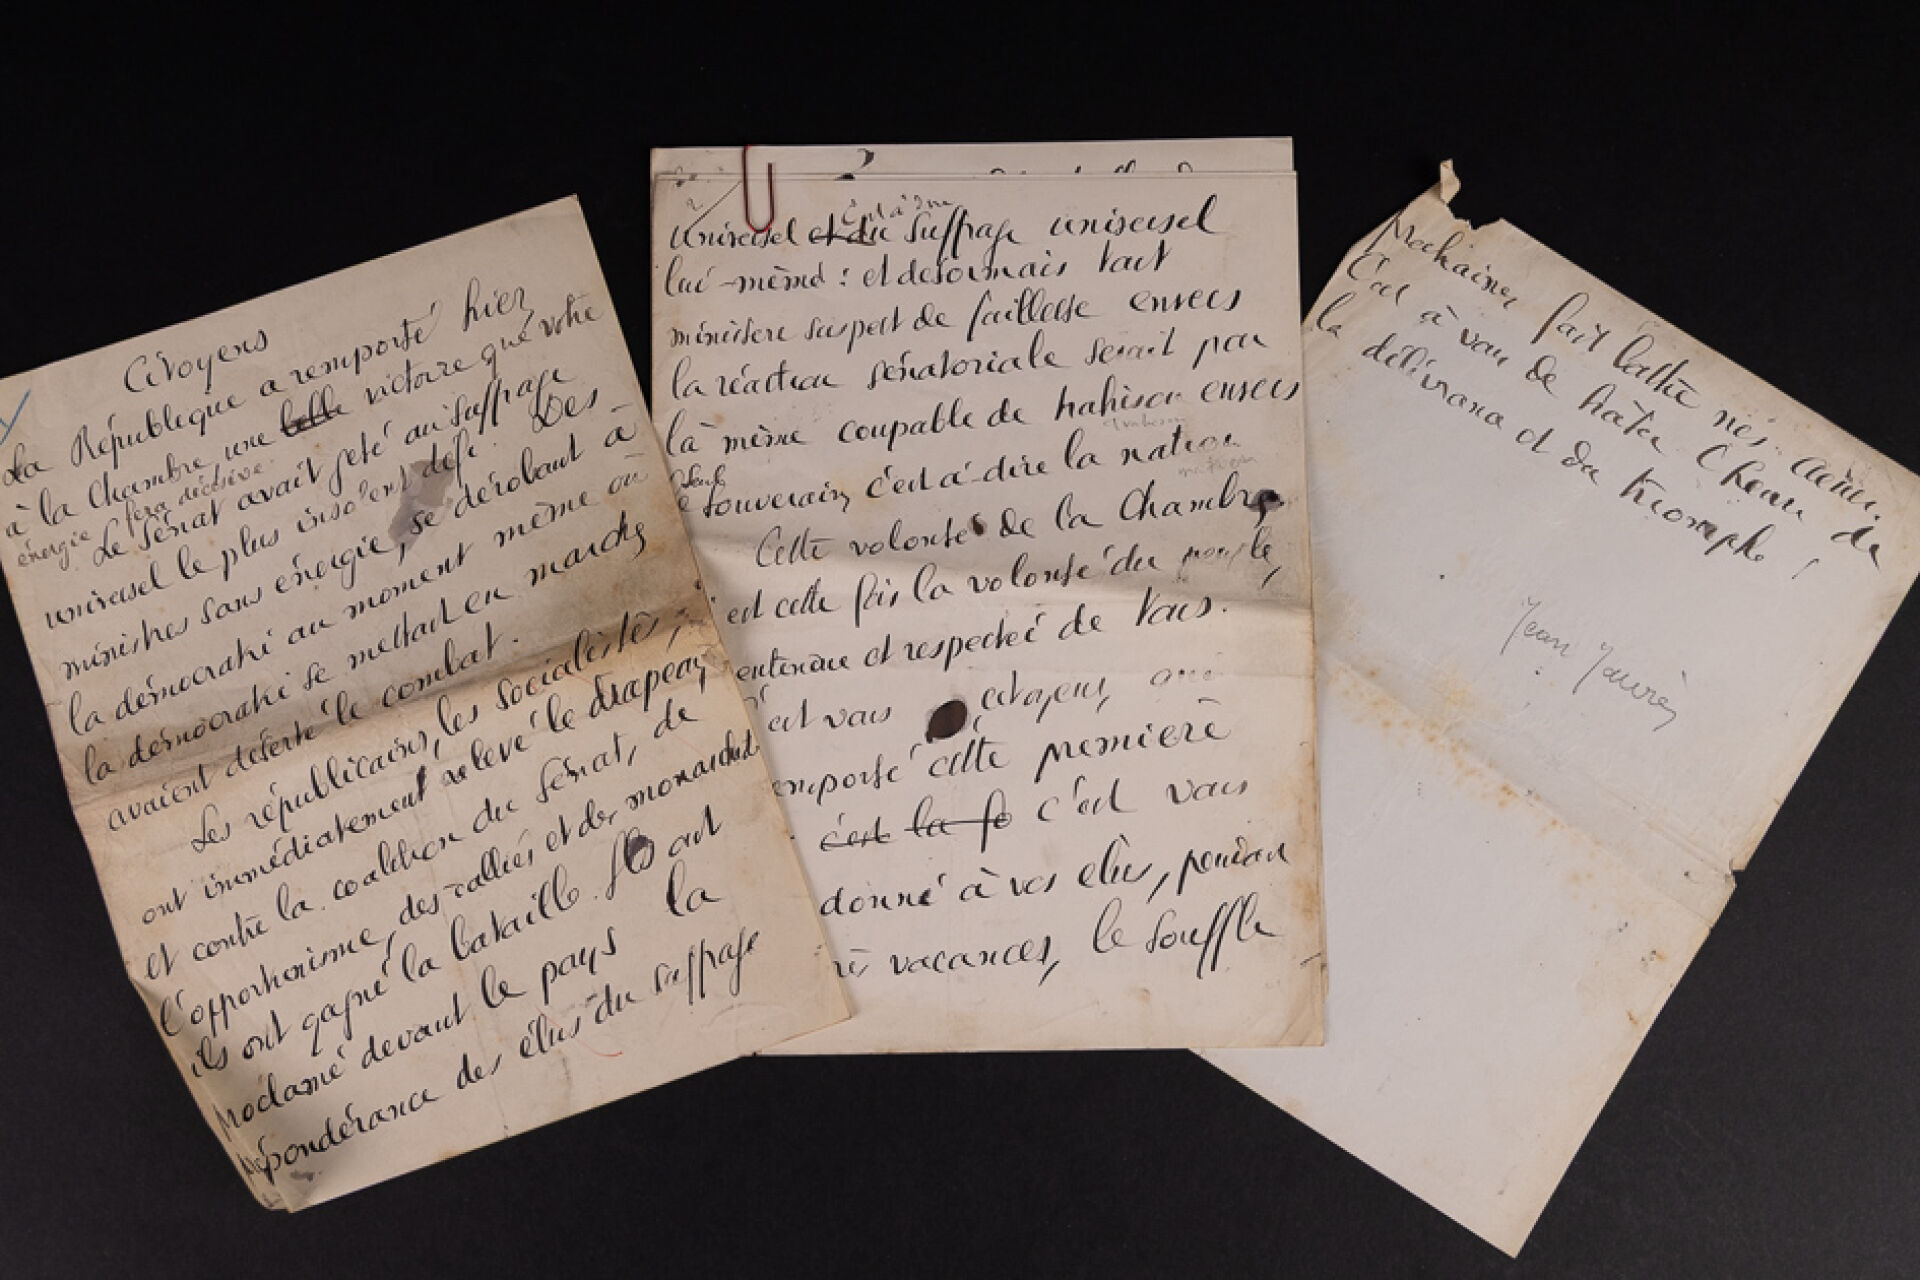 Citoyens
La République a remporté hier
à la Chambre une belle victoire que votre
énergie fera décisive.
Le Sénat avait jeté au suffrage
universel le plus insolent défi. Des
ministres sans énergie, se dérobant à
la démocratie au moment même où
la démocratie se mettait en marche
avaient déserté le combat.
Les républicains, les socialistes,
ont immédiatement relevé le drapeau
et contre la coalition du Sénat, de
l'opportunisme, des ralliés et des monarchistes
ils ont gagné la bataille. Ils ont
proclamé devant le pays la
prépondérance des élus du suffrage
2
universel et du c'est à dire suffrage universel
lui-même : et désormais tout
ministère suspect de faiblesse envers
la réaction sénatoriale serait par
là même coupable de trahison envers
trahison
le seul souverain, c'est-à-dire la nation
nation
Cette volonté de la Chambre
est cette fois la volonté du peuple,
entendue et respectée de tous.
c'est vous citoyens, qui
emporté cette première
c'est la fo c'est vous
donné à vos élus, pendant
vacances, le souffle
Prochaines fait battre nos
C'est à vous de hâter l'heure de
la délivrance et du triomphe !
Jean Jaurès